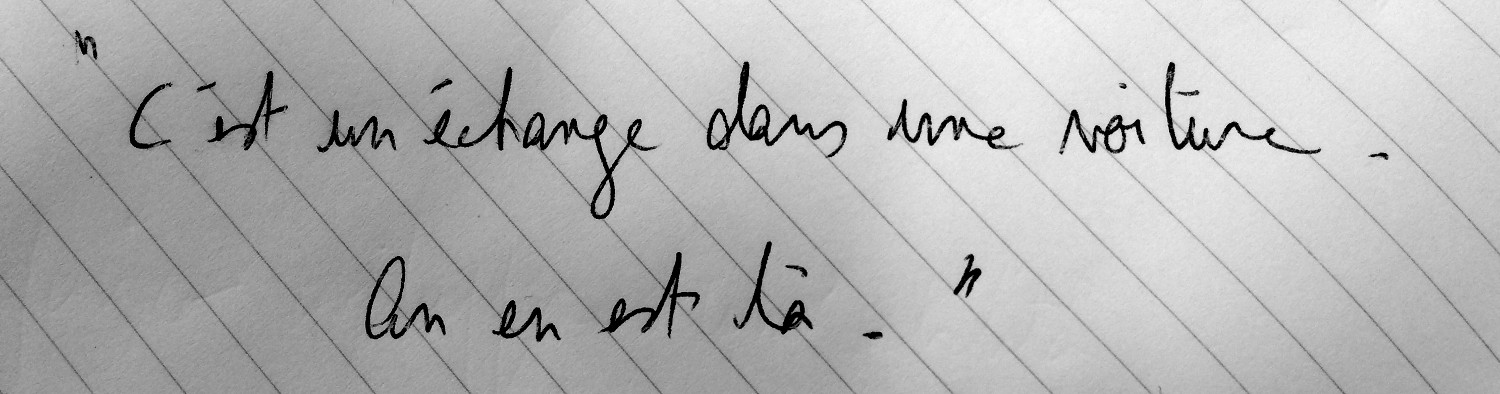 "C'est un échange dans une voiture.
On en est là."